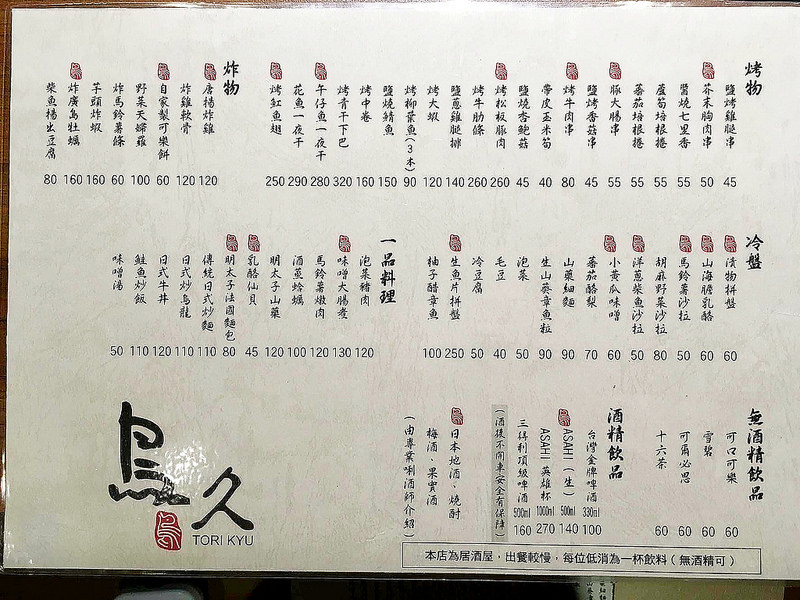 烤物
鹽烤雞腿串 45
芥末胸肉串 50
醬燒七里香 55
蘆筍培根捲 55
蕃茄培根捲 55
豚大腸串 55
鹽烤香菇串 45
烤牛肉串 80
帶皮玉米筍 40
鹽燒杏鮑菇 45
烤松板豚肉 260
烤牛肋條 260
鹽蔥雞腿排 140
烤大蝦 120
烤柳葉魚(3本) 90
鹽燒鯖魚 150
烤中卷 160
烤青干下巴 320
午仔魚一夜干 280
花魚一夜干 290
烤紅魚翅 250
炸物
唐揚炸雞 120
炸雞軟骨 120
自家製可樂餅 60
野菜天婦羅 100
炸馬鈴薯條 60
芋頭炸蝦 160
炸廣島牡蠣 160
柴魚揚出豆腐 80
冷盤
漬物拼盤 60
山海膽乳酪 60
馬鈴薯沙拉 50
胡麻野菜沙拉 80
洋蔥柴魚沙拉 50
小黃瓜味噌 60
蕃茄酪梨 70
山藥細麵 90
生山葵章魚粒 90
泡菜 50
毛豆 40
冷豆腐 50
生魚片拼盤 250
柚子醋章魚 100
一品料理
泡菜豬肉 120
味噌大腸煮 130
馬鈴薯燉肉 120
酒蒸蛤蠣 100
明太子山藥 120
乳酪仙貝 45
明太子法國麵包 80
傳統日式炒麵 110
日式炒烏龍 110
日式牛丼 120
鮭魚炒飯 110
味噌湯 50
無酒精飲品
可口可樂 60
雪碧 60
可爾必思 60
十六茶 60
酒精飲品
台灣金牌啤酒 330ml 100
ASAHI(生) 500ml 140
ASAHI 英雄杯 1000ml 270
三得利頂級啤酒 500ml 160
(酒後不開車安全有保障)
日本地酒、燒酎
梅酒、果實酒
(由專業唎酒師介紹)
鳥久
TORI KYU
本店為居酒屋，出餐較慢，每位低消為一杯飲料(無酒精可)